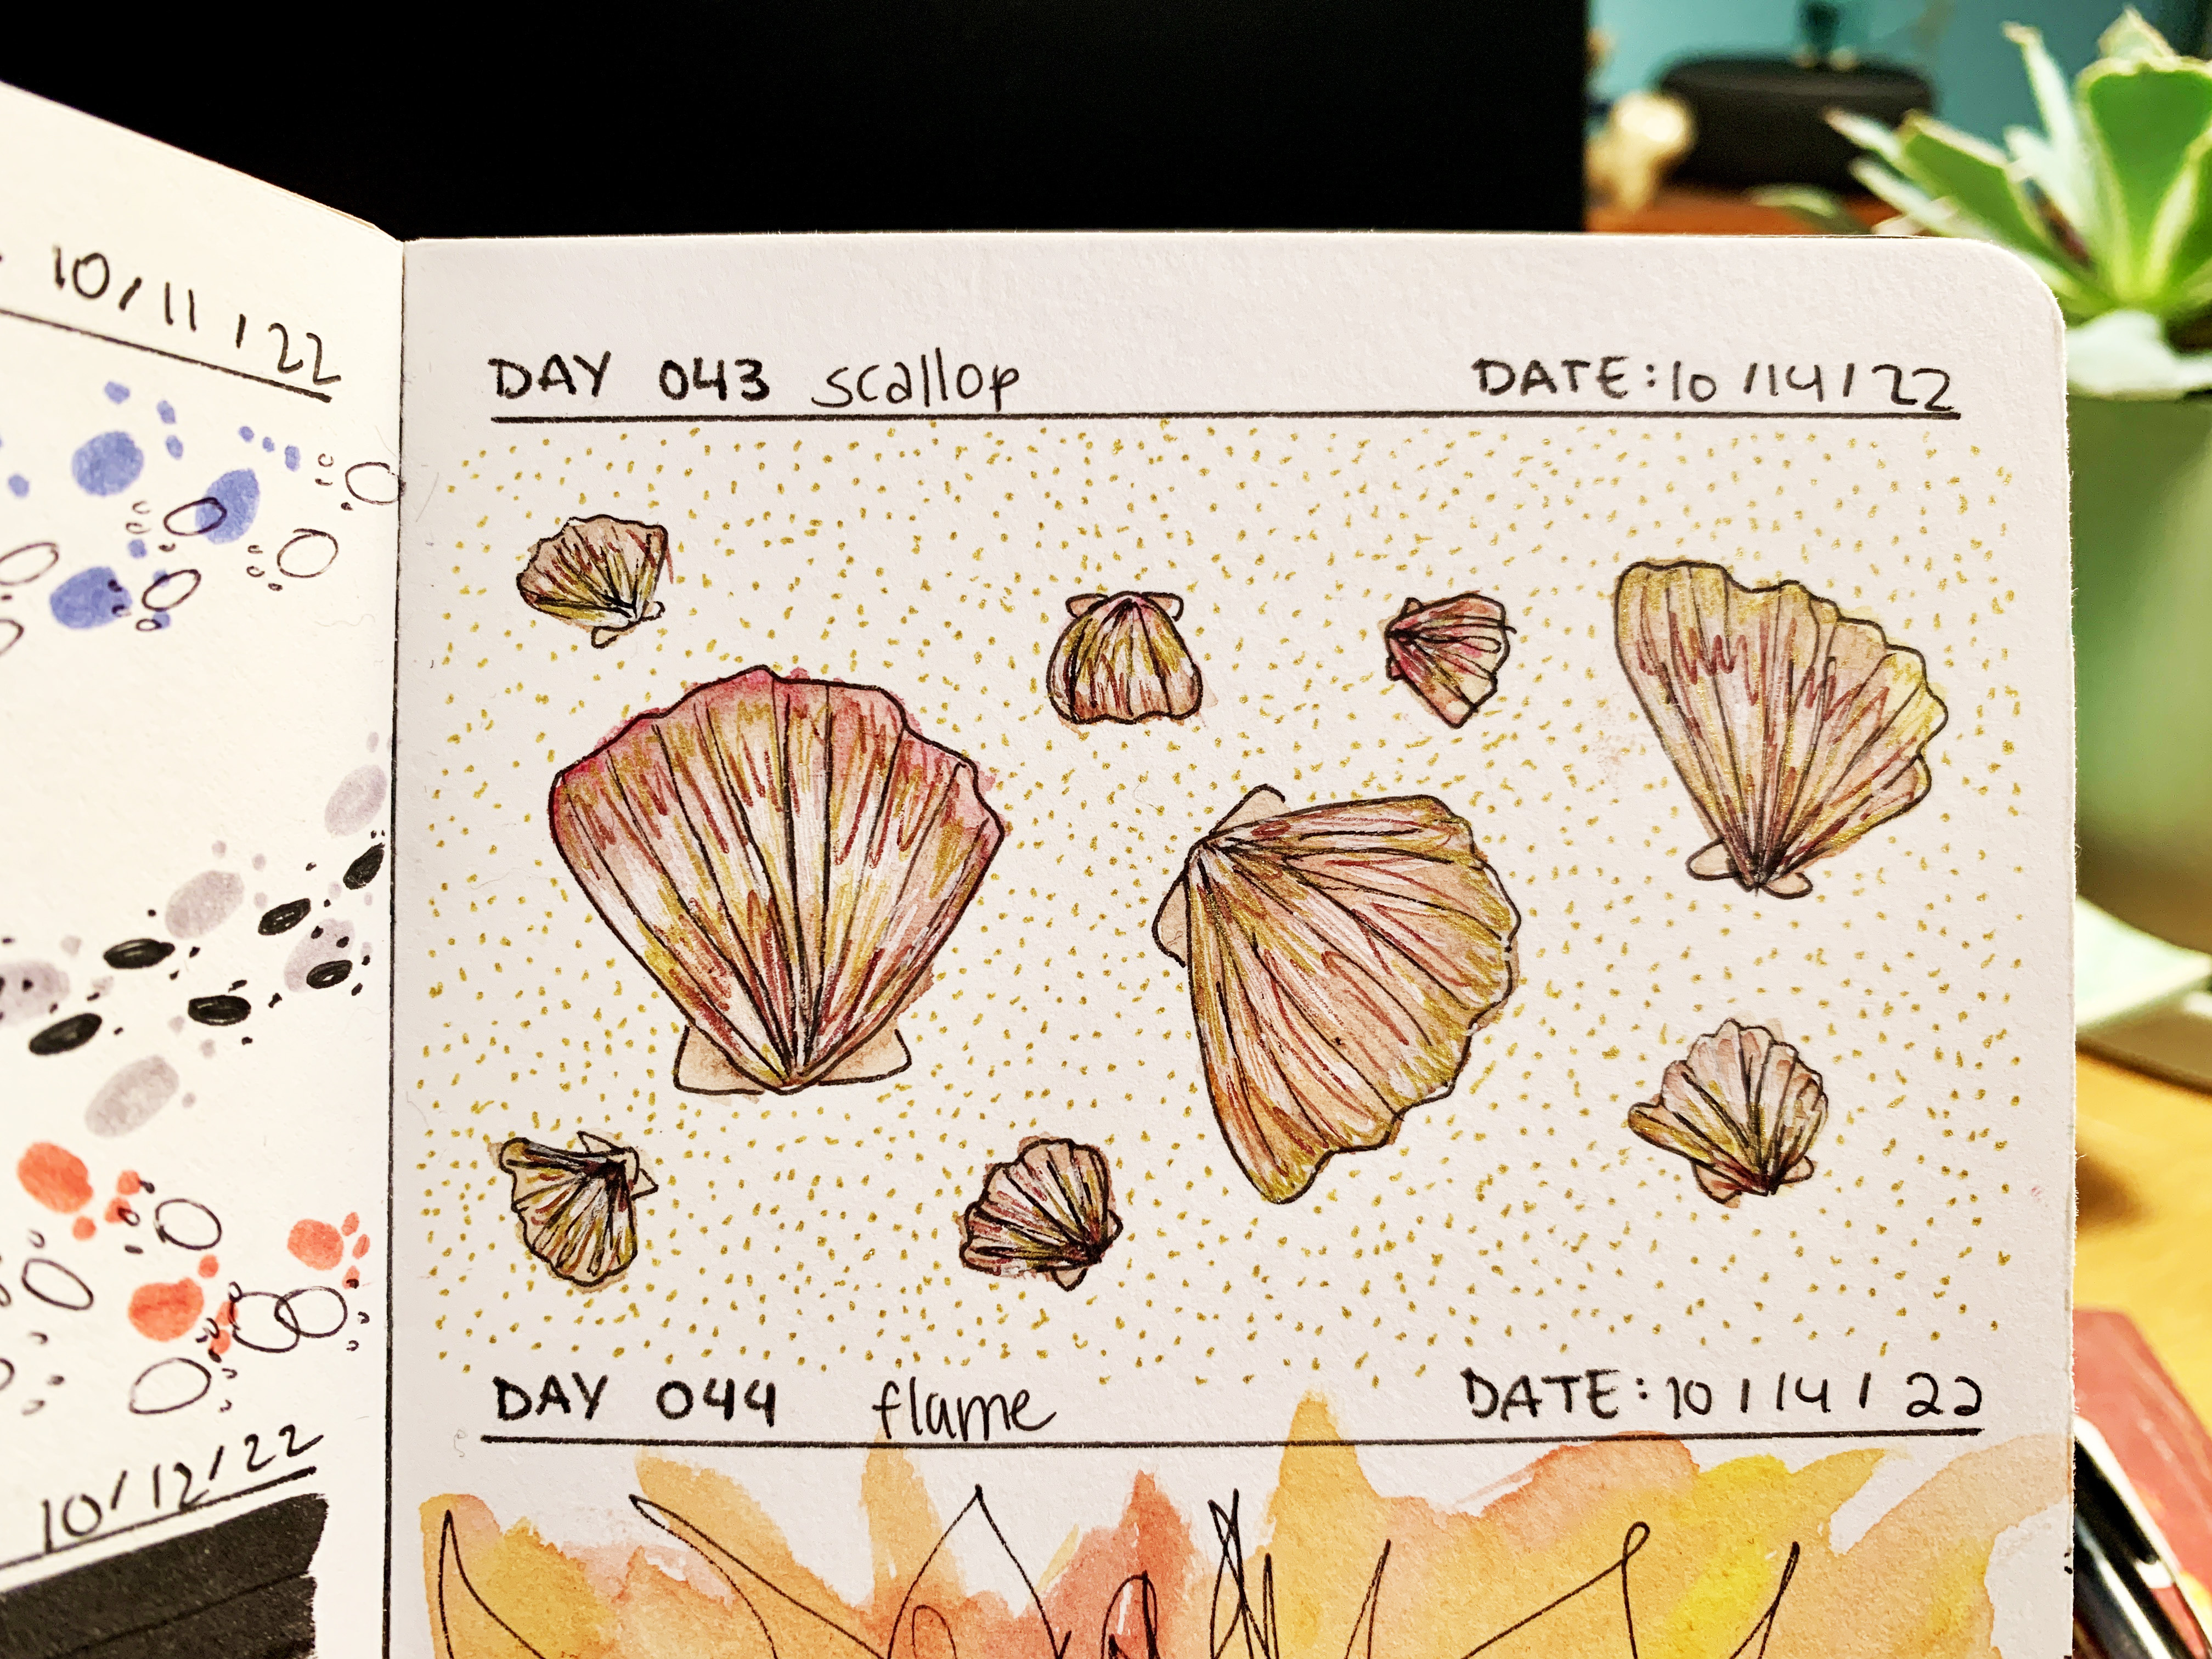 10/11/22
10/12/22
DAY 043 scallop DATE: 10/14/22
DAY 044 flame DATE: 10/14/22